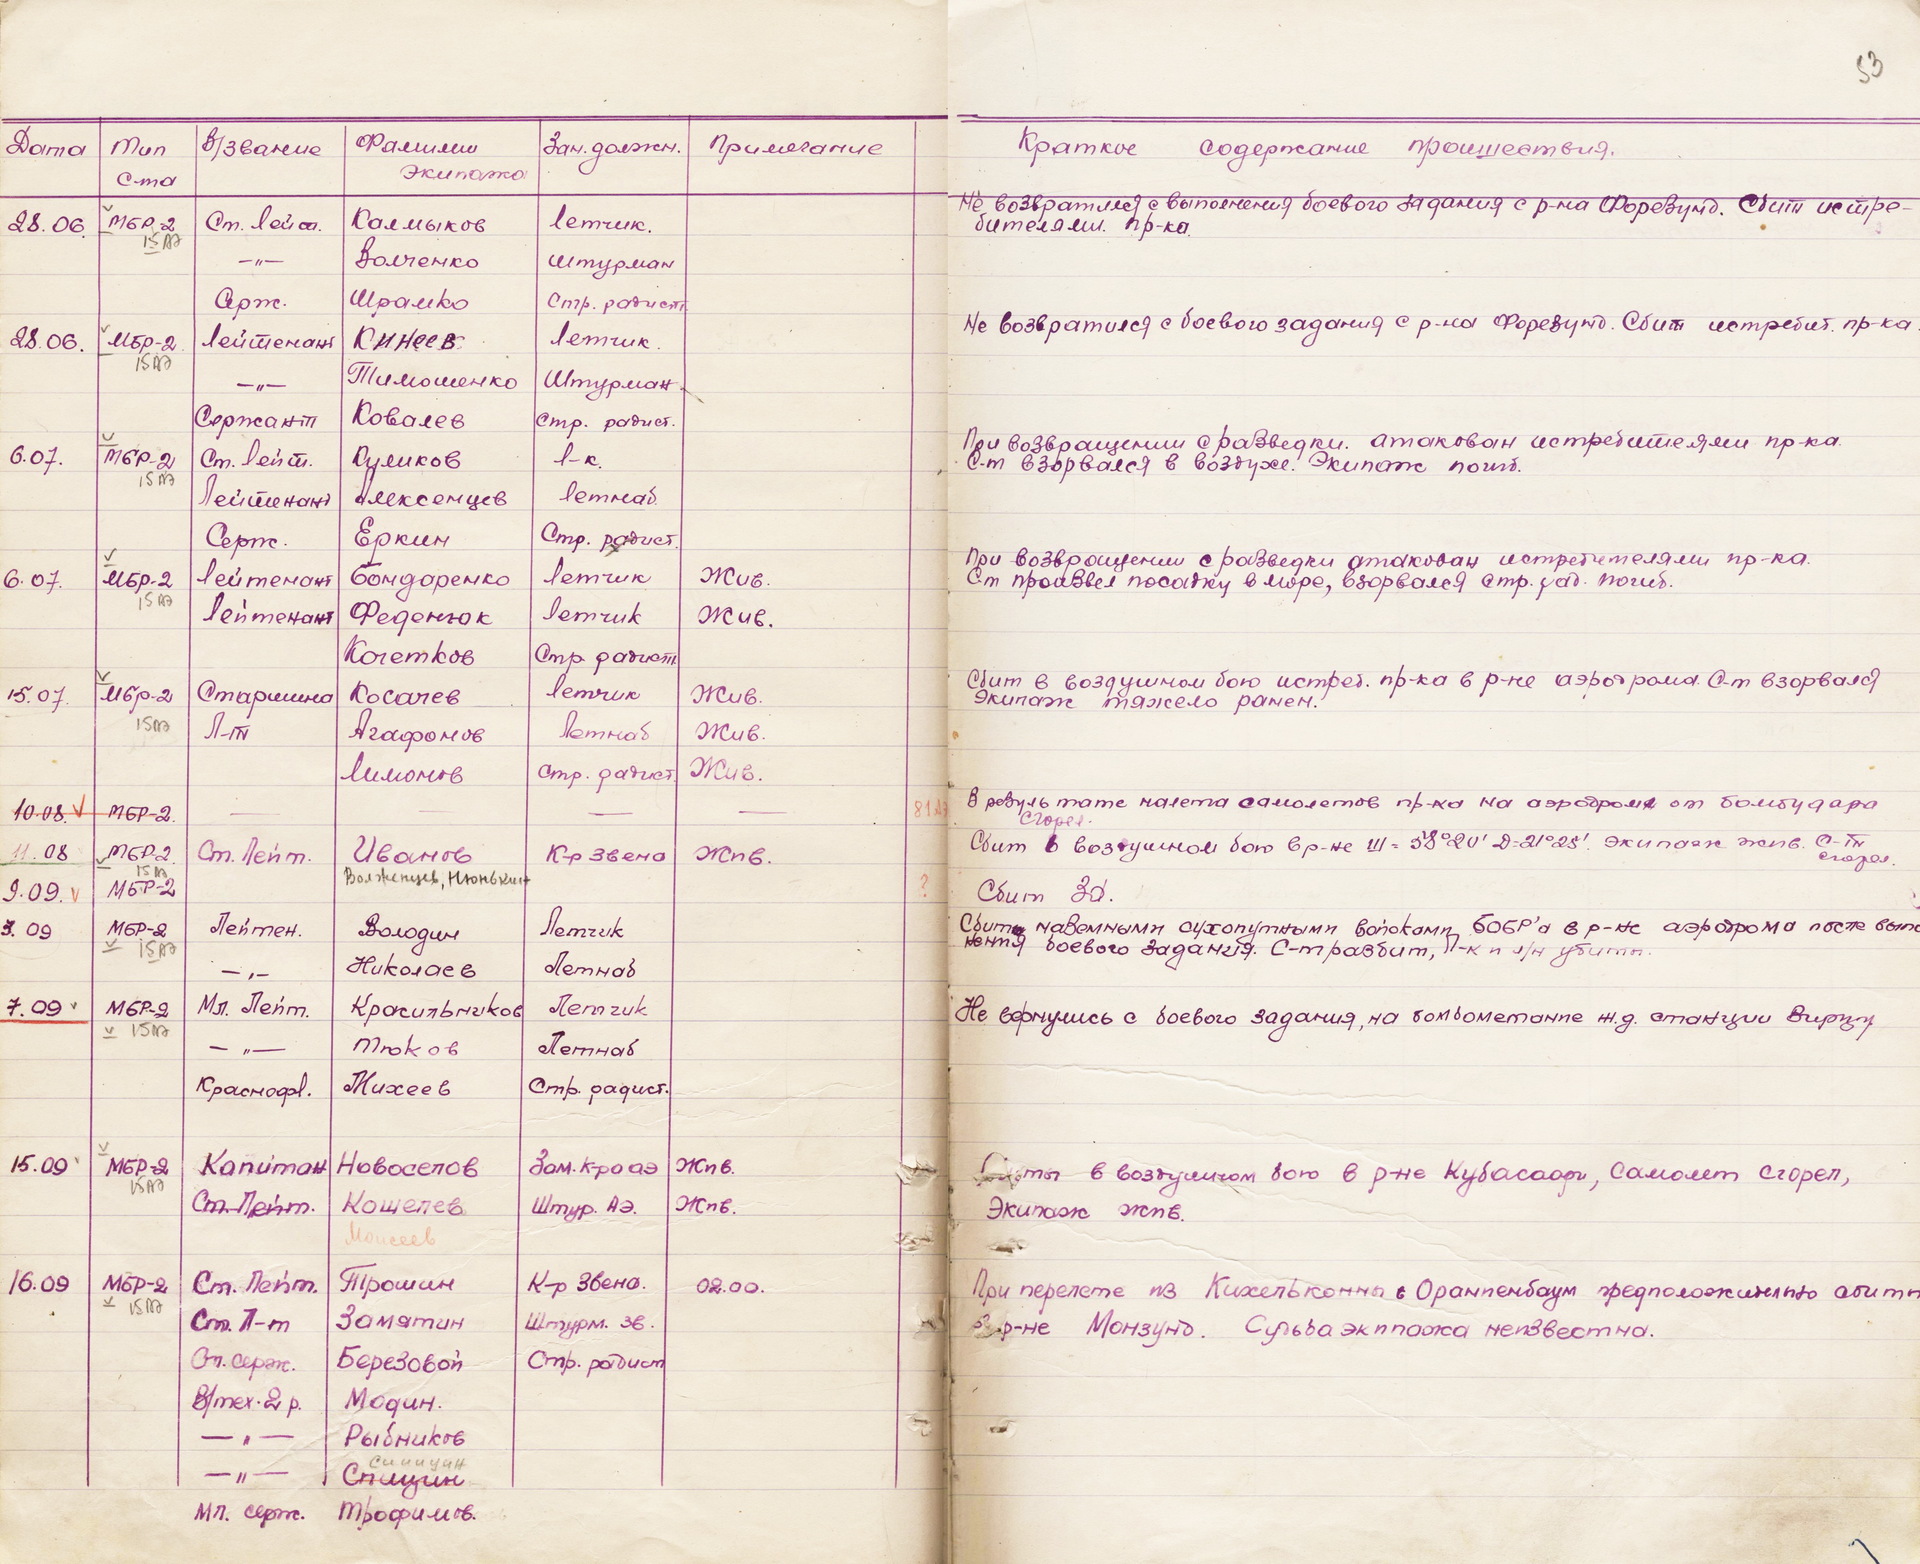 53
Дата Тип В/звание Фамилии Зан. должн. Примечание Краткое содержание проишествия.
С-та Экипажа
28.06. МБР-2 Ст. Лейт. Калмыков Летчик. Не возвратился с выполнения боевого задания с р-на Форезунд. Сбит истре-
15АЭ бителями пр-ка.
—"— Волченко штурман
Серж. Шрамко Стр. радист
28.06. МБР-2 Лейтенант Кинеев Летчик. Не возвратился с боевого задания с р-на Форезунд. Сбит истребит. пр-ка.
15АЭ
—"— Тимошенко Штурман
Сержант Ковалев стр. радист.
6.07. МБР-2 Ст. Лейт. Куликов Л-к. При возвращении с разведки. атакован истребителями пр-ка.
15АЭ С-т взорвался в воздухе. Экипаж погиб.
Лейтенант Алексенцев Летнаб
Серж. Еркин Стр. радист.
6.07. МБР-2 Лейтенант Бондаренко Летчик Жив. При возвращении с разведки атакован истребителями пр-ка.
15АЭ Ст произвел посадку в море, взорвался стр. рад. погиб.
Лейтенант Феденюк Летчик Жив.
Кочетков Стр радист
15.07. МБр-2 Старшина Косачев Летчик Жив. Сбит в воздушном бою истреб. пр-ка в р-не аэродрома. С-т взорвался
15АЭ Экипаж тяжело ранен.
Л-т Агафонов Летнаб Жив.
Лимонов стр. радист. Жив.
10.08. МБР-2. — — — 81АЭ В результате налета самолетов пр-ка на аэродром от бомбудара
сгорел.
11.08 МБР-2 Ст. Лейт. Иванов К-р Звена Жив. Сбит в воздушном бою в р-не Ш = 58°20' Д=21°25'. Экипаж жив. С-т
15АЭ Волженцев, Нюнькин сгорел.
9.09. МБР-2 ? Сбит ЗА.
9.09 МБР-2 Лейтен. Володин Летчик Сбиты наземными сухопутными войсками БОБР'а в р-не аэродрома после выпо
15АЭ нения боевого задания. С-т разбит, Л-к и л/н убиты.
—"— Николаев Летнаб
7.09 МБР-2 Мл. Лейт. Красильников Летчик Не вернулись с боевого задания, на бомбометание ж.д. станции Вирцу
15АЭ
—"— Тюков Летнаб
Краснофл. Михеев Стр. радист.
15.09 МБР-2 Капитан Новоселов Зам. к-ра аэ Жив. Сбиты в воздушном бою в р-не Кубасаари, Самолет сгорел,
15АЭ
Ст. Лейт. Кошелев Штур. Аэ. Жив. Экипаж жив.
Моисеев
16.09 МБР-2 Ст. Лейт. Трошин К-р Звена. 02.00. При перелете из Кихельконны в Ораниенбаум предположительно сбиты
15АЭ
Ст. Л-т Замятин Штурм. зв. в р-не Монзунд. Судьба экипажа неизвестна.
Ст. серж. Березовой Стр. радист
В/тех. 2 р. Модин.
—"— Рыбников
Синицин
—"— Спицин
Мл. серж. Трофимов.